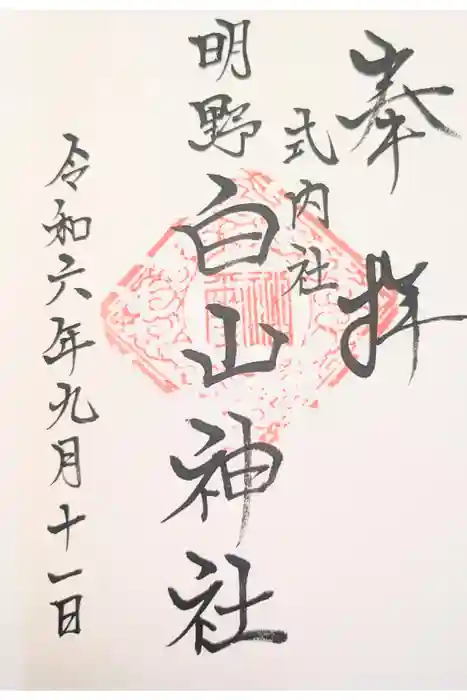 奉拝
式内社
明野白山神社
令和六年九月十一日